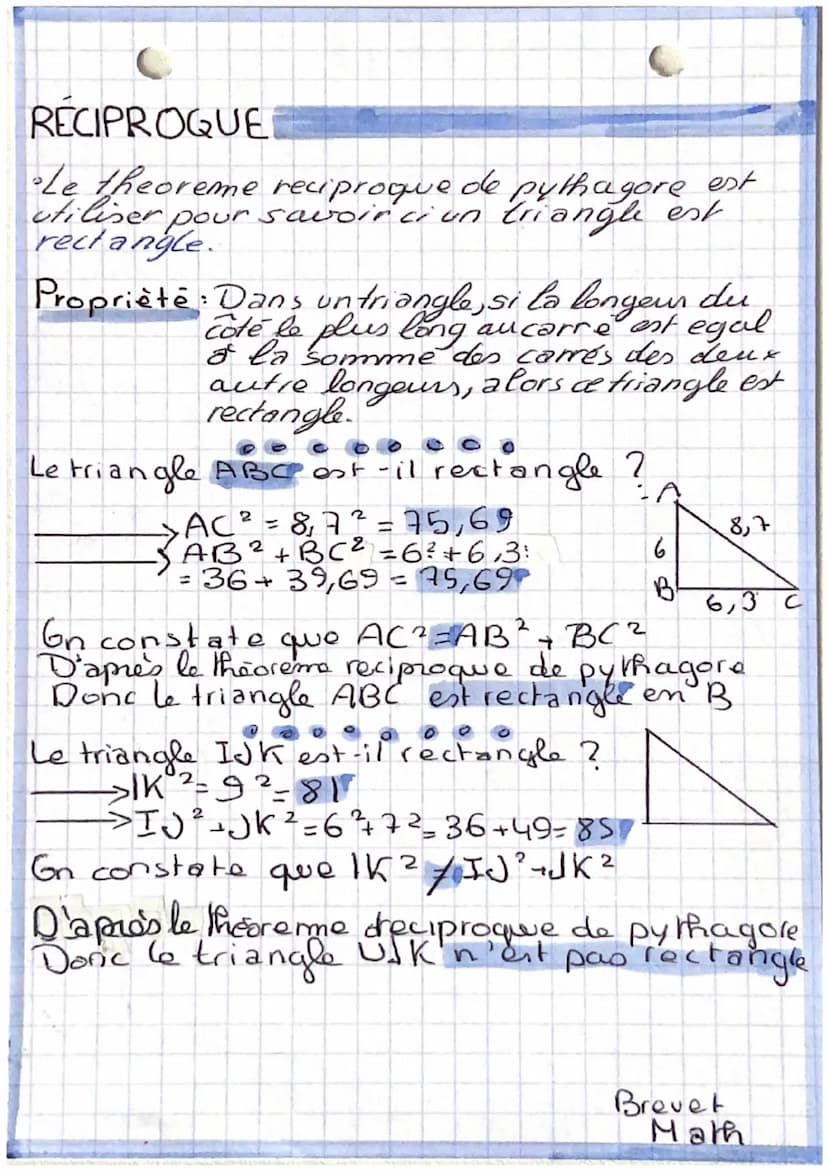 RÉCIPROQUE
•Le theoreme reciproque de pythagore est
utiliser pour savoir ci un triangle est
rectangle.
Propriètè : Dans un triangle, si la longeur du
côté le plus long au carré est egal
à la somme des carrés des deux
autre longeurs, alors ce triangle est
rectangle.
Le triangle ABC est-il rectangle ?
AC² = 8,7² = 75,69
AB² + BC² = 6² + 6,3
= 36 + 39,69 = 75,69
A
8,7
6
B
6,3 C
On constate que AC² = AB² + BC²
D'après le théoreme reciproque de pythagore
Donc le triangle ABC est rectangle en B
Le triangle IJK est-il rectangle ?
→ IK² = 9² = 81
→ IJ² + JK² = 6² + 7² = 36 + 49 = 85
On constate que IK² ≠ IJ² + JK²
D'après le théoreme reciproque de pythagore
Donc le triangle IJK n'est pas rectangle
Brevet
Math